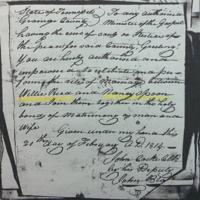 State of Tennessee } To any authorised
Grainger County } Minister of the Gospel
having the care of souls or Justice of
the peace for said County, Greeting
You are hereby authorised and
empowered to celebrate and per
form the rites of Marriage between
Willie and Nancy
and join them together in the holy
bonds of Matrimony as man and
Wife Given under my hand this
21st day of February AD. 1814
John Cocke Clk
by his Deputy
John